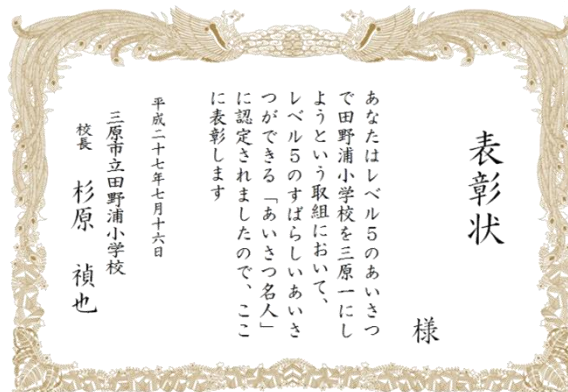 表彰状
様
あなたはレベル5のあいさつ
で田野浦小学校を三原一にし
ようという取組において、
レベル5のすばらしいあいさ
つができる「あいさつ名人」
に認定されましたので、ここ
に表彰します
平成二十七年七月十六日
三原市立田野浦小学校
校長 杉原 禎也